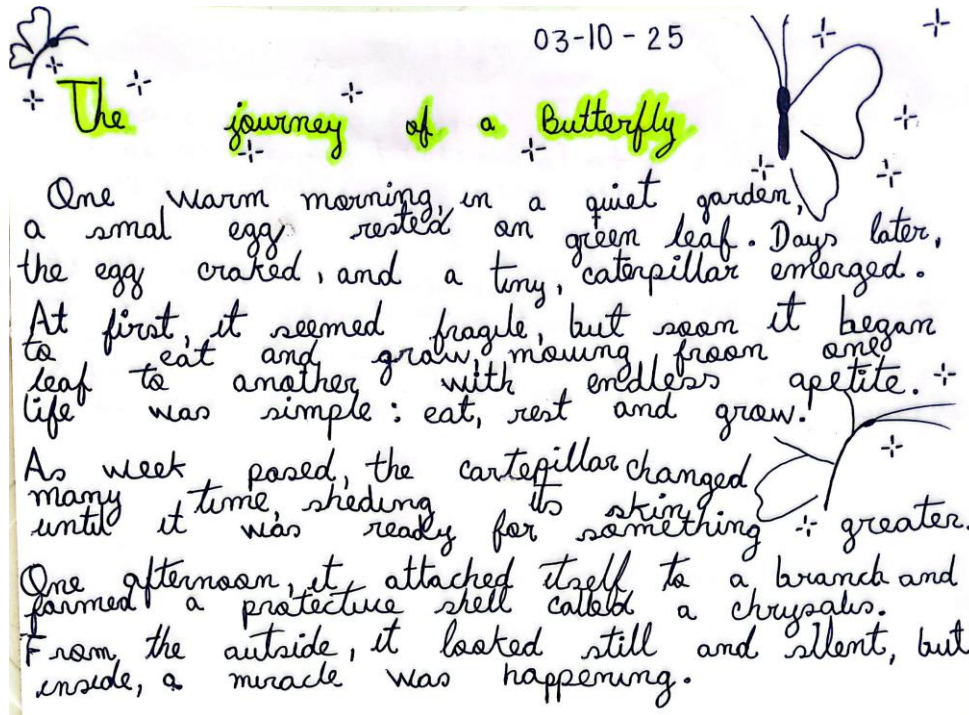 03-10-25
The journey of a Butterfly
One warm morning, in a quiet garden,
a smal egg rested on green leaf. Days later,
the egg craked, and a tiny, caterpillar emerged.
At first, it seemed fragile, but soon it began
to eat and grow, moving froon one
leaf to another with endless apetite.
life was simple: eat, rest and grow.
As week posed, the cartepillar changed
many time, sheding its skin
until it was ready for something greater.
One afternoon, it attached itself to a branch and
formed a protective shell called a chrysalis.
From the outside, it looked still and silent, but
inside, a miracle was happening.